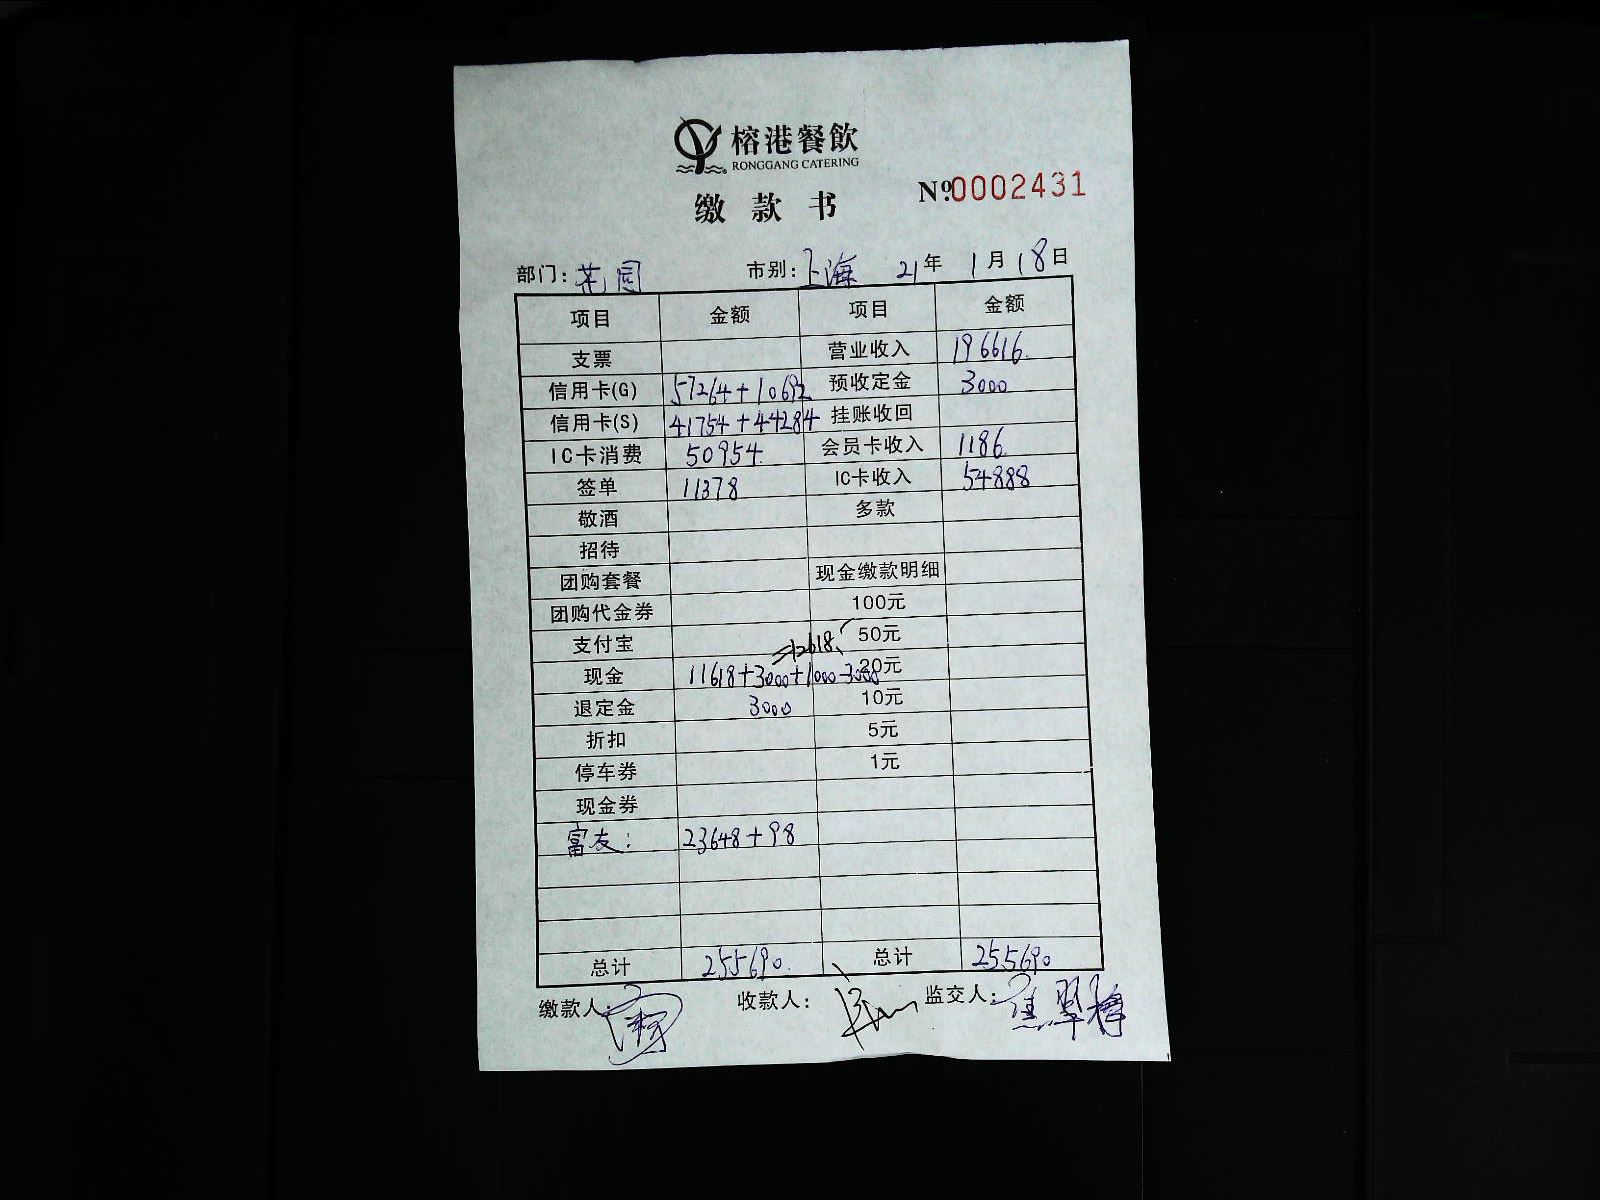 榕港餐飲
RONGGANG CATERING
缴款书
Nº0002431
部门:花园 市别:上海 21年1月18日
项目 金额 项目 金额
支票 营业收入 196616
信用卡(G) 57264+10692 预收定金 3000
信用卡(S) 41754+44284 挂账收回
IC卡消费 50954 会员卡收入 1186
签单 11378 IC卡收入 54888
敬酒 多款
招待
团购套餐 现金缴款明细
团购代金券 100元
支付宝 50元
=12618
现金 11618+3000+1000-3000 20元
退定金 3000 10元
折扣 5元
停车券 1元
现金券
富友: 23648+98
总计 255690. 总计 255690
缴款人: 收款人: 监交人: